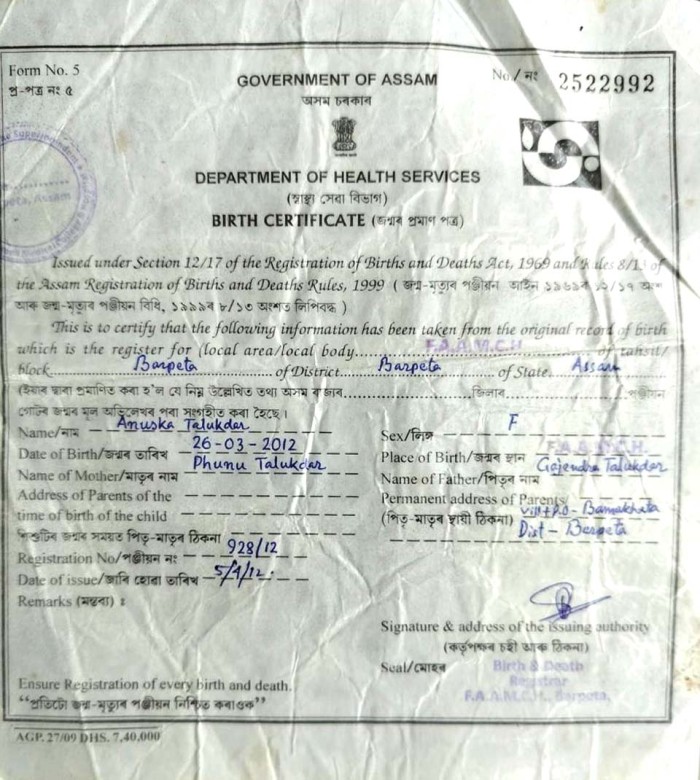 Form No. 5
প্ৰ-পত্ৰ নং ৫
GOVERNMENT OF ASSAM
অসম চৰকাৰ
No./ নং 2522992
DEPARTMENT OF HEALTH SERVICES
(স্বাস্থ্য সেৱা বিভাগ)
BIRTH CERTIFICATE (জন্মৰ প্ৰমাণ পত্ৰ)
Issued under Section 12/17 of the Registration of Births and Deaths Act, 1969 and Rules 8/13 of
the Assam Registration of Births and Deaths Rules, 1999 ( জন্ম-মৃত্যুৰ পঞ্জীয়ন আইন ১৯৬৯ৰ ১২/১৭ অংশ
আৰু জন্ম-মৃত্যুৰ পঞ্জীয়ন বিধি, ১৯৯৯ৰ ৮/১৩ অংশত লিপিবদ্ধ )
This is to certify that the following information has been taken from the original record of birth
which is the register for (local area/local body F.A.A.M.C.H of tahsil/
block Barpeta of District Barpeta of State Assam
(ইয়াৰ দ্বাৰা প্ৰমাণিত কৰা হ'ল যে নিম্ন উল্লেখিত তথ্য অসম ৰাজ্যৰ জিলাৰ পঞ্জীয়ন
গোটৰ জন্মৰ মূল অভিলেখৰ পৰা সংগৃহীত কৰা হৈছে।
Name/নাম Anuska Talukdar
Sex/লিঙ্গ F
Date of Birth/জন্মৰ তাৰিখ 26-03-2012
Place of Birth/জন্মৰ স্থান F.A.A.M.C.H.
Name of Mother/মাতৃৰ নাম Phunu Talukdar
Name of Father/পিতৃৰ নাম Gajendra Talukdar
Address of Parents of the
time of birth of the child
শিশুটিৰ জন্মৰ সময়ত পিতৃ-মাতৃৰ ঠিকনা
Permanent address of Parents/ Vill+P.O-
(পিতৃ-মাতৃৰ স্থায়ী ঠিকনা) Dist - Barpeta
Registration No/পঞ্জীয়ন নং 928/12
Date of issue/জাৰি হোৱা তাৰিখ 5/4/12
Remarks (মন্তব্য) :
Signature & address of the issuing authority
(কৰ্তৃপক্ষৰ চহী আৰু ঠিকনা)
Seal/মোহৰ Birth & Death
Registrar
F.A.A.M.C.H., Barpeta.
Ensure Registration of every birth and death.
“প্ৰতিটো জন্ম-মৃত্যুৰ পঞ্জীয়ন নিশ্চিত কৰাওক”
AGP. 27/09 DHS. 7,40,000